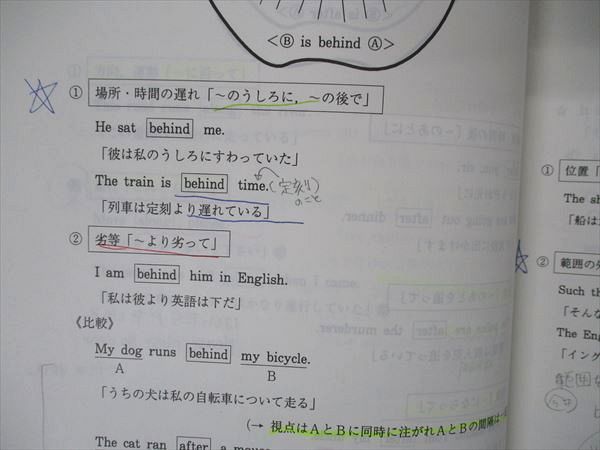 <Ⓑ is behind Ⓐ>
① 場所・時間の遅れ「～のうしろに，～の後で」
He sat behind me.
「彼は私のうしろにすわっていた」
The train is behind time.(定刻)のこと
「列車は定刻より遅れている」
② 劣等「～より劣って」
I am behind him in English.
「私は彼より英語は下だ」
《比較》
My dog runs behind my bicycle.
A B
「うちの犬は私の自転車について走る」
(→ 視点はAとBに同時に注がれAとBの間隔は
The cat ran after a mouse
① 位置「
The sh
「船は
② 範囲の外
Such th
「そんな
The Eng
「イング
範囲な